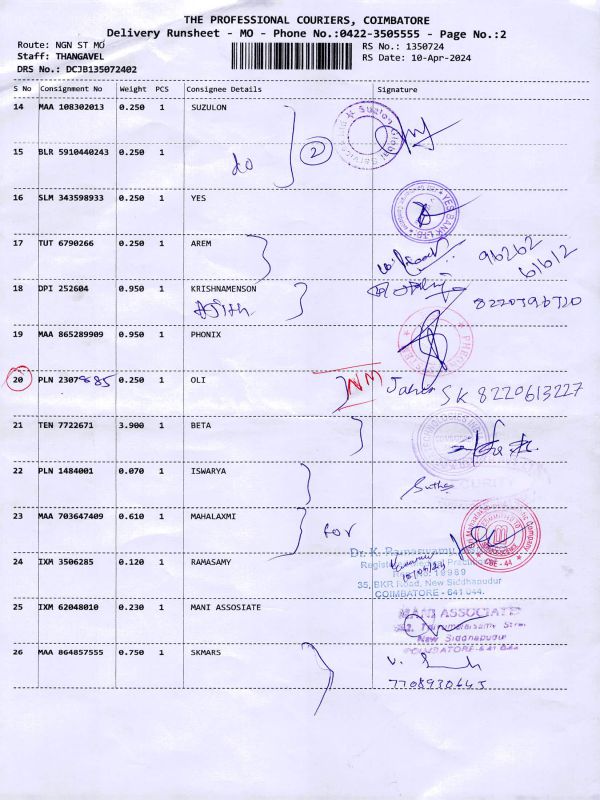 THE PROFESSIONAL COURIERS, COIMBATORE
Delivery Runsheet - MO - Phone No.:0422-3505555 - Page No.:2
Route: NGN ST MO
RS No.: 1350724
Staff: THANGAVEL
RS Date: 10-Apr-2024
DRS No.: DCJB135072402
S No Consignment No Weight PCS Consignee Details Signature
14 MAA 108302013 0.250 1 SUZULON
15 BLR 5910440243 0.250 1 do 2
16 SLM 343598933 0.250 1 YES
YES BANK LTD
17 TUT 6790266 0.250 1 AREM
96262
61612
18 DPI 252604 0.950 1 KRISHNAMENSON
8220396720
19 MAA 865289909 0.950 1 PHONIX
20 PLN 2307 0.250 1 OLI NM SK 8220613227
21 TEN 7722671 3.900 1 BETA
22 PLN 1484001 0.070 1 ISWARYA
23 MAA 703647409 0.610 1 MAHALAXMI
for
CBE - 44
24 IXM 3506285 0.120 1 RAMASAMY
Dr. K. Ramaswamy
35, BKR Road, New Siddhapudur
COIMBATORE - 641 044.
25 IXM 62048010 0.230 1 MANI ASSOSIATE
MANI ASSOCIATE
New Siddhapudur
26 MAA 864857555 0.750 1 SKMARS